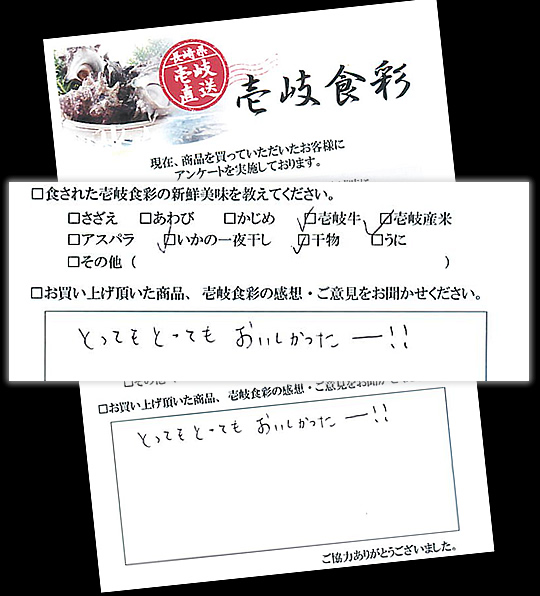 長崎県
壱岐
直送
壱岐食彩
現在、商品を買っていただいたお客様に
アンケートを実施しております。
□食された壱岐食彩の新鮮美味を教えてください。
□さざえ □あわび □かじめ ☑壱岐牛 ☑壱岐産米
□アスパラ ☑いかの一夜干し ☑干物 □うに
□その他（ ）
□お買い上げ頂いた商品、壱岐食彩の感想・ご意見をお聞かせください。
とってもとっても おいしかったー!!
□その他
□お買い上げ頂いた商品、壱岐食彩の感想・ご意見をお聞かせください。
とってもとっても おいしかったー!!
ご協力ありがとうございました。